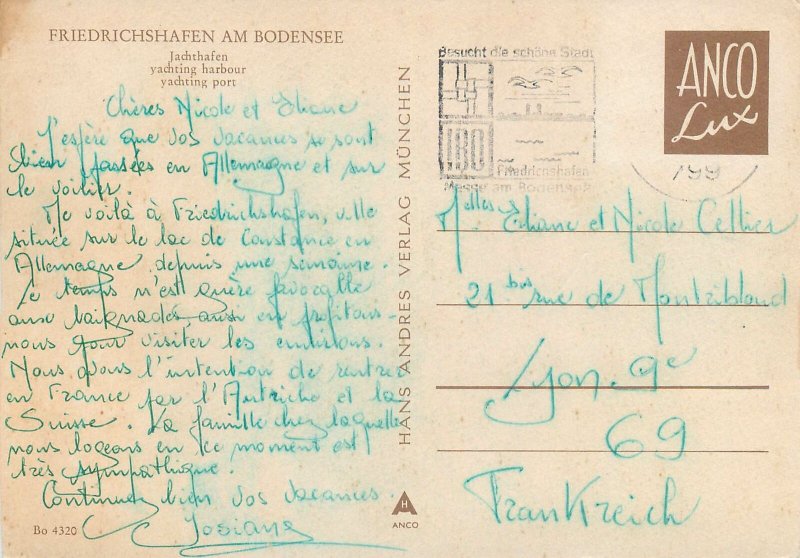 FRIEDRICHSHAFEN AM BODENSEE
Jachthafen
yachting harbour
yachting port
Chères Nicole et Eliane
J'espère que vos vacances se sont
bien passées en Allemagne et sur
le voilier.
Me voilà à Friedrichshafen, ville
située sur le lac de Constance en
Allemagne depuis une semaine.
Le temps n'est guère favorable
aux baignades, aussi en profitons-
nous pour visiter les environs.
Nous avons l'intention de rentrer
en France par l'Autriche et la
Suisse. La famille chez laquelle
nous logeons en ce moment est
très sympathique.
Continuez bien vos vacances.
Josiane
Bo 4320
HANS ANDRES VERLAG MÜNCHEN
H
ANCO
Besucht die schöne Stadt
IBO
Friedrichshafen
Messe am Bodensee
799
ANCO
Lux
Melles Eliane et Nicole Cellier
21 bis rue de Montribloud
Lyon-9e
69
Frankreich